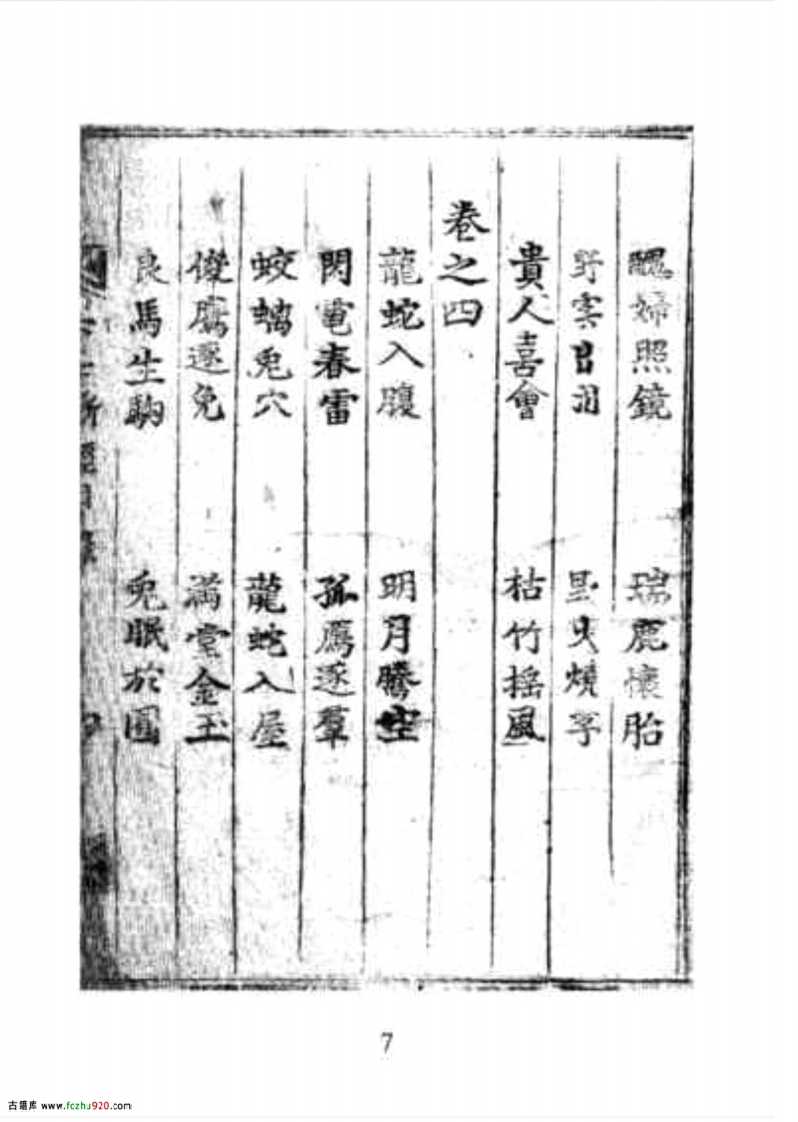 醜婦照鏡 瑞鹿懷胎
野雲出 星火燒
貴人喜會 枯竹搖風
卷之四
龍蛇入腹 明月騰空
閃電春雷 孤鴈逐羣
蛟螭兎穴 龍蛇入屋
俊鷹逐兔 滿堂金玉
良馬生駒 兎眠於園
7
古籍库 www.fczhu920.com